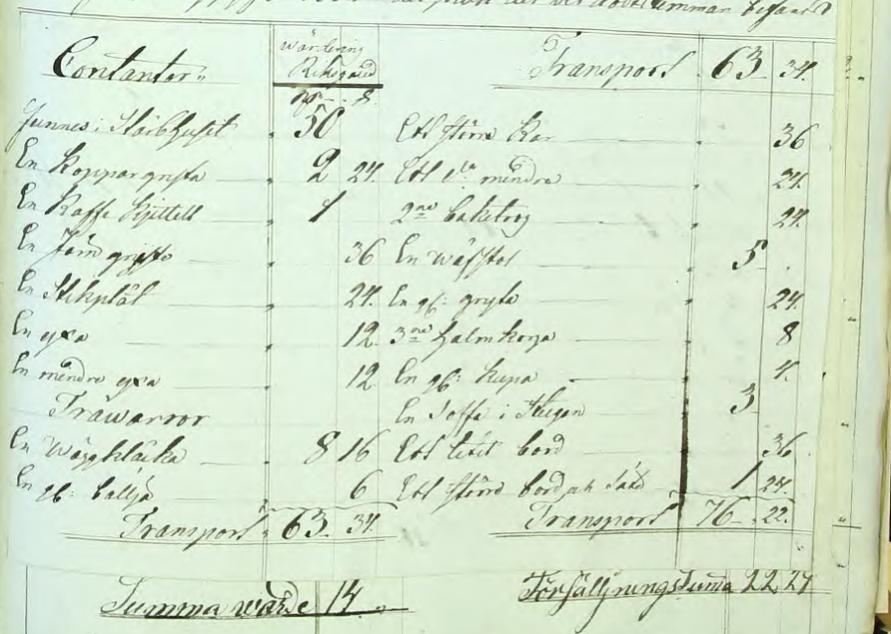 summan befants
Contanter
wärdering
Riksgäld
Transport 63 34.
Junnes i Stärbhuset 50
Ett störra Kar 36
En Koppar gryta 2 24.
Ett do mindre 24.
En Kaffe Kjittell 1
2ne baktrog 24.
En Järn gryta 36
En wäfstol 5
En Stekplåt 24.
En gl: gryta 24.
En yxa 12
3ne halm korga 8
En mindre yxa 12
En gl: kupa 4.
Träwarror
En Soffa i Stugan 3
En Wäggklåcka 8 16
Ett litit bord 36
En gl: ballja 6
Ett störra bord 1 24.
Transport 63. 34.
Transport 76 22.
Summa wärde 14
Försälljningssuma 22, 24